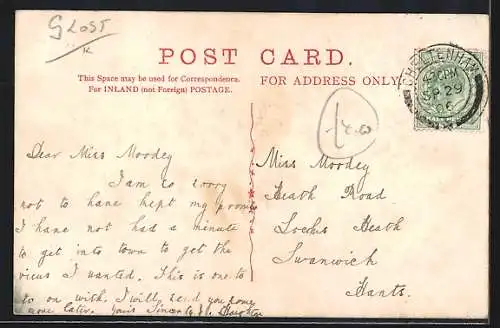 GLOST
POST CARD.
This Space may be used for Correspondence.
For INLAND (not Foreign) POSTAGE.
FOR ADDRESS ONLY.
CHELTENHAM
SP 29
06
Dear Miss Moodey
I am so sorry
not to have kept my promise
I have not had a minute
to get into town to get the
views I wanted. This is one to
go on with. I will send you some
more later. Yours Sincerely
Miss Moodey
Heath Road
Locks Heath
Swanwick
Hants.